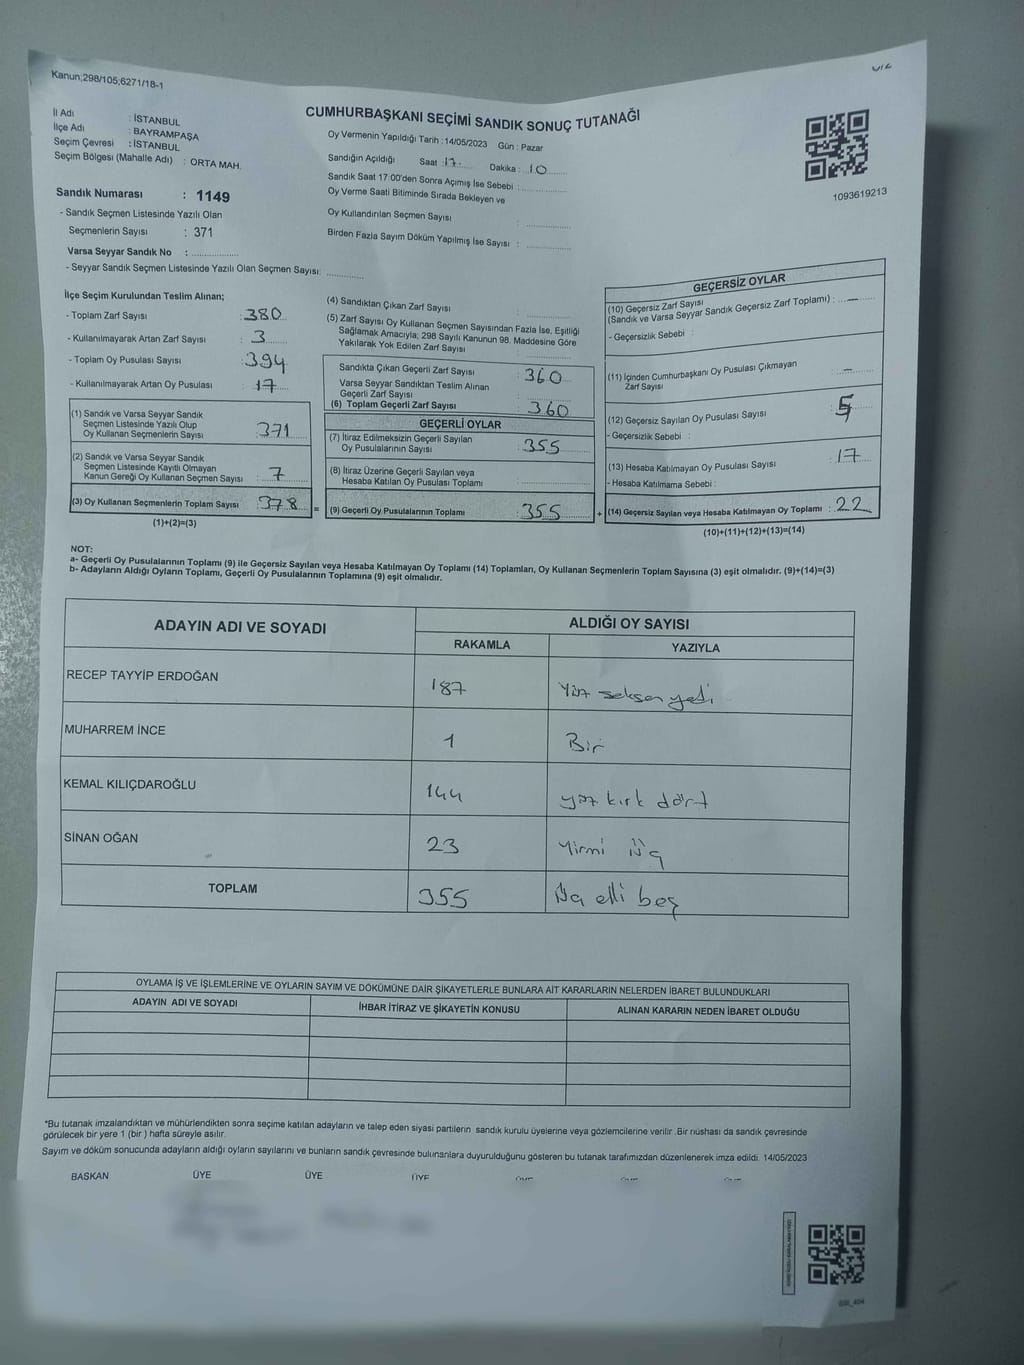 Kanun;298/105;6271/18-1
CUMHURBAŞKANI SEÇİMİ SANDIK SONUÇ TUTANAĞI
İl Adı : İSTANBUL
İlçe Adı : BAYRAMPAŞA
Seçim Çevresi : İSTANBUL
Seçim Bölgesi (Mahalle Adı) : ORTA MAH.
Sandık Numarası : 1149
- Sandık Seçmen Listesinde Yazılı Olan
Seçmenlerin Sayısı : 371
Varsa Seyyar Sandık No : ..............
- Seyyar Sandık Seçmen Listesinde Yazılı Olan Seçmen Sayısı: ............
Oy Vermenin Yapıldığı Tarih : 14/05/2023 Gün : Pazar
Sandığın Açıldığı Saat : 17 Dakika : 10
Sandık Saat 17:00'den Sonra Açımış İse Sebebi : ..............
Oy Verme Saati Bitiminde Sırada Bekleyen ve
Oy Kullandırılan Seçmen Sayısı : ..............
Birden Fazla Sayım Döküm Yapılmış İse Sayısı : ..............
1093619213
İlçe Seçim Kurulundan Teslim Alınan;
- Toplam Zarf Sayısı : 380
- Kullanılmayarak Artan Zarf Sayısı : 3
- Toplam Oy Pusulası Sayısı : 394
- Kullanılmayarak Artan Oy Pusulası : 17
(1) Sandık ve Varsa Seyyar Sandık
Seçmen Listesinde Yazılı Olup
Oy Kullanan Seçmenlerin Sayısı : 371
(2) Sandık ve Varsa Seyyar Sandık
Seçmen Listesinde Kayıtlı Olmayan
Kanun Gereği Oy Kullanan Seçmen Sayısı : 7
(3) Oy Kullanan Seçmenlerin Toplam Sayısı : 378 =
(1)+(2)=(3)
(4) Sandıktan Çıkan Zarf Sayısı : ..............
(5) Zarf Sayısı Oy Kullanan Seçmen Sayısından Fazla İse, Eşitliği
Sağlamak Amacıyla; 298 Sayılı Kanunun 98. Maddesine Göre
Yakılarak Yok Edilen Zarf Sayısı : ..............
Sandıkta Çıkan Geçerli Zarf Sayısı : 360
Varsa Seyyar Sandıktan Teslim Alınan
Geçerli Zarf Sayısı : ..............
(6) Toplam Geçerli Zarf Sayısı : 360
GEÇERLİ OYLAR
(7) İtiraz Edilmeksizin Geçerli Sayılan
Oy Pusulalarının Sayısı : 355
(8) İtiraz Üzerine Geçerli Sayılan veya
Hesaba Katılan Oy Pusulası Toplamı : ..............
(9) Geçerli Oy Pusulalarının Toplamı : 355 +
GEÇERSİZ OYLAR
(10) Geçersiz Zarf Sayısı
(Sandık ve Varsa Seyyar Sandık Geçersiz Zarf Toplamı) : —
- Geçersizlik Sebebi :
(11) İçinden Cumhurbaşkanı Oy Pusulası Çıkmayan
Zarf Sayısı : —
(12) Geçersiz Sayılan Oy Pusulası Sayısı : 5
- Geçersizlik Sebebi :
(13) Hesaba Katılmayan Oy Pusulası Sayısı : 17
- Hesaba Katılmama Sebebi :
(14) Geçersiz Sayılan veya Hesaba Katılmayan Oy Toplamı : 22
(10)+(11)+(12)+(13)=(14)
NOT:
a- Geçerli Oy Pusulalarının Toplamı (9) ile Geçersiz Sayılan veya Hesaba Katılmayan Oy Toplamı (14) Toplamları, Oy Kullanan Seçmenlerin Toplam Sayısına (3) eşit olmalıdır. (9)+(14)=(3)
b- Adayların Aldığı Oyların Toplamı, Geçerli Oy Pusulalarının Toplamına (9) eşit olmalıdır.
ADAYIN ADI VE SOYADI ALDIĞI OY SAYISI
RAKAMLA YAZIYLA
RECEP TAYYİP ERDOĞAN 187 Yüz seksen yedi
MUHARREM İNCE 1 Bir
KEMAL KILIÇDAROĞLU 144 yüz kırk dört
SİNAN OĞAN 23 Yirmi üç
TOPLAM 355 Üç elli beş
OYLAMA İŞ VE İŞLEMLERİNE VE OYLARIN SAYIM VE DÖKÜMÜNE DAİR ŞİKAYETLERLE BUNLARA AİT KARARLARIN NELERDEN İBARET BULUNDUKLARI
ADAYIN ADI VE SOYADI İHBAR İTİRAZ VE ŞİKAYETİN KONUSU ALINAN KARARIN NEDEN İBARET OLDUĞU
*Bu tutanak imzalandıktan ve mühürlendikten sonra seçime katılan adayların ve talep eden siyasi partilerin sandık kurulu üyelerine veya gözlemcilerine verilir .Bir nüshası da sandık çevresinde
görülecek bir yere 1 (bir ) hafta süreyle asılır.
Sayım ve döküm sonucunda adayların aldığı oyların sayılarını ve bunların sandık çevresinde bulunanlara duyurulduğunu gösteren bu tutanak tarafımızdan düzenlenerek imza edildi. 14/05/2023
BAŞKAN ÜYE ÜYE ÜYE